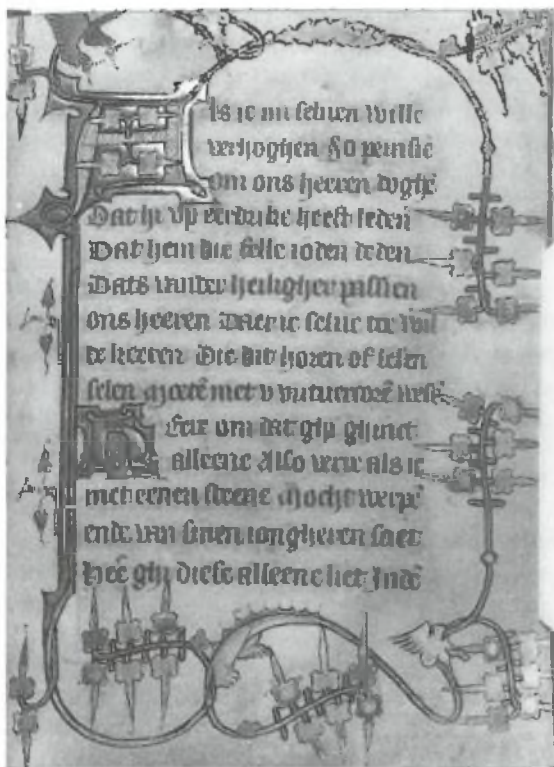 Als ic mi seluen wille
verhoghen So peinsic
om ons heeren doghē
Dat hi vp eerdrike heeft leden
Dat hem die felle ioden deden
Dats vander heiligher passien
ons heeren Daer ic selue toe wil
te keeren Die dit horen of lesen
selen Moetē met v wesē
Here om dat ghi ghinct
alleene Also verre als ic
met eenen steene Mocht werpē
ende van sinen iongheren saet
Heē ghi diese alleene liet Indē